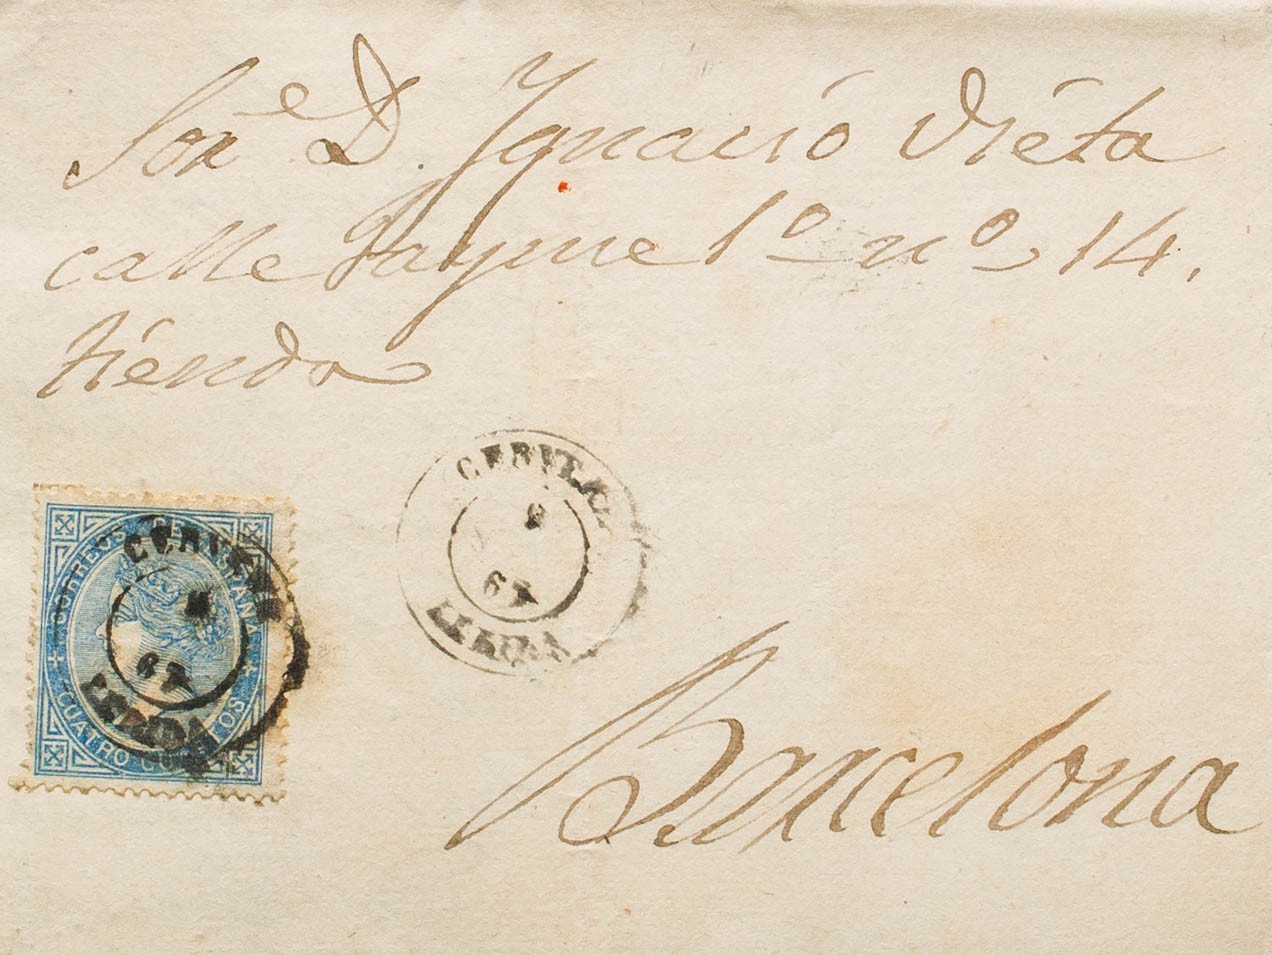 Sor.e D. Ygnació Viéta
calle Jayme 1º nº 14.
tiénda
CORREOS DE ESPAÑA
CUATRO CUARTOS
CERVERA
67
LERIDA
CERVERA
67
LERIDA
Barcelona